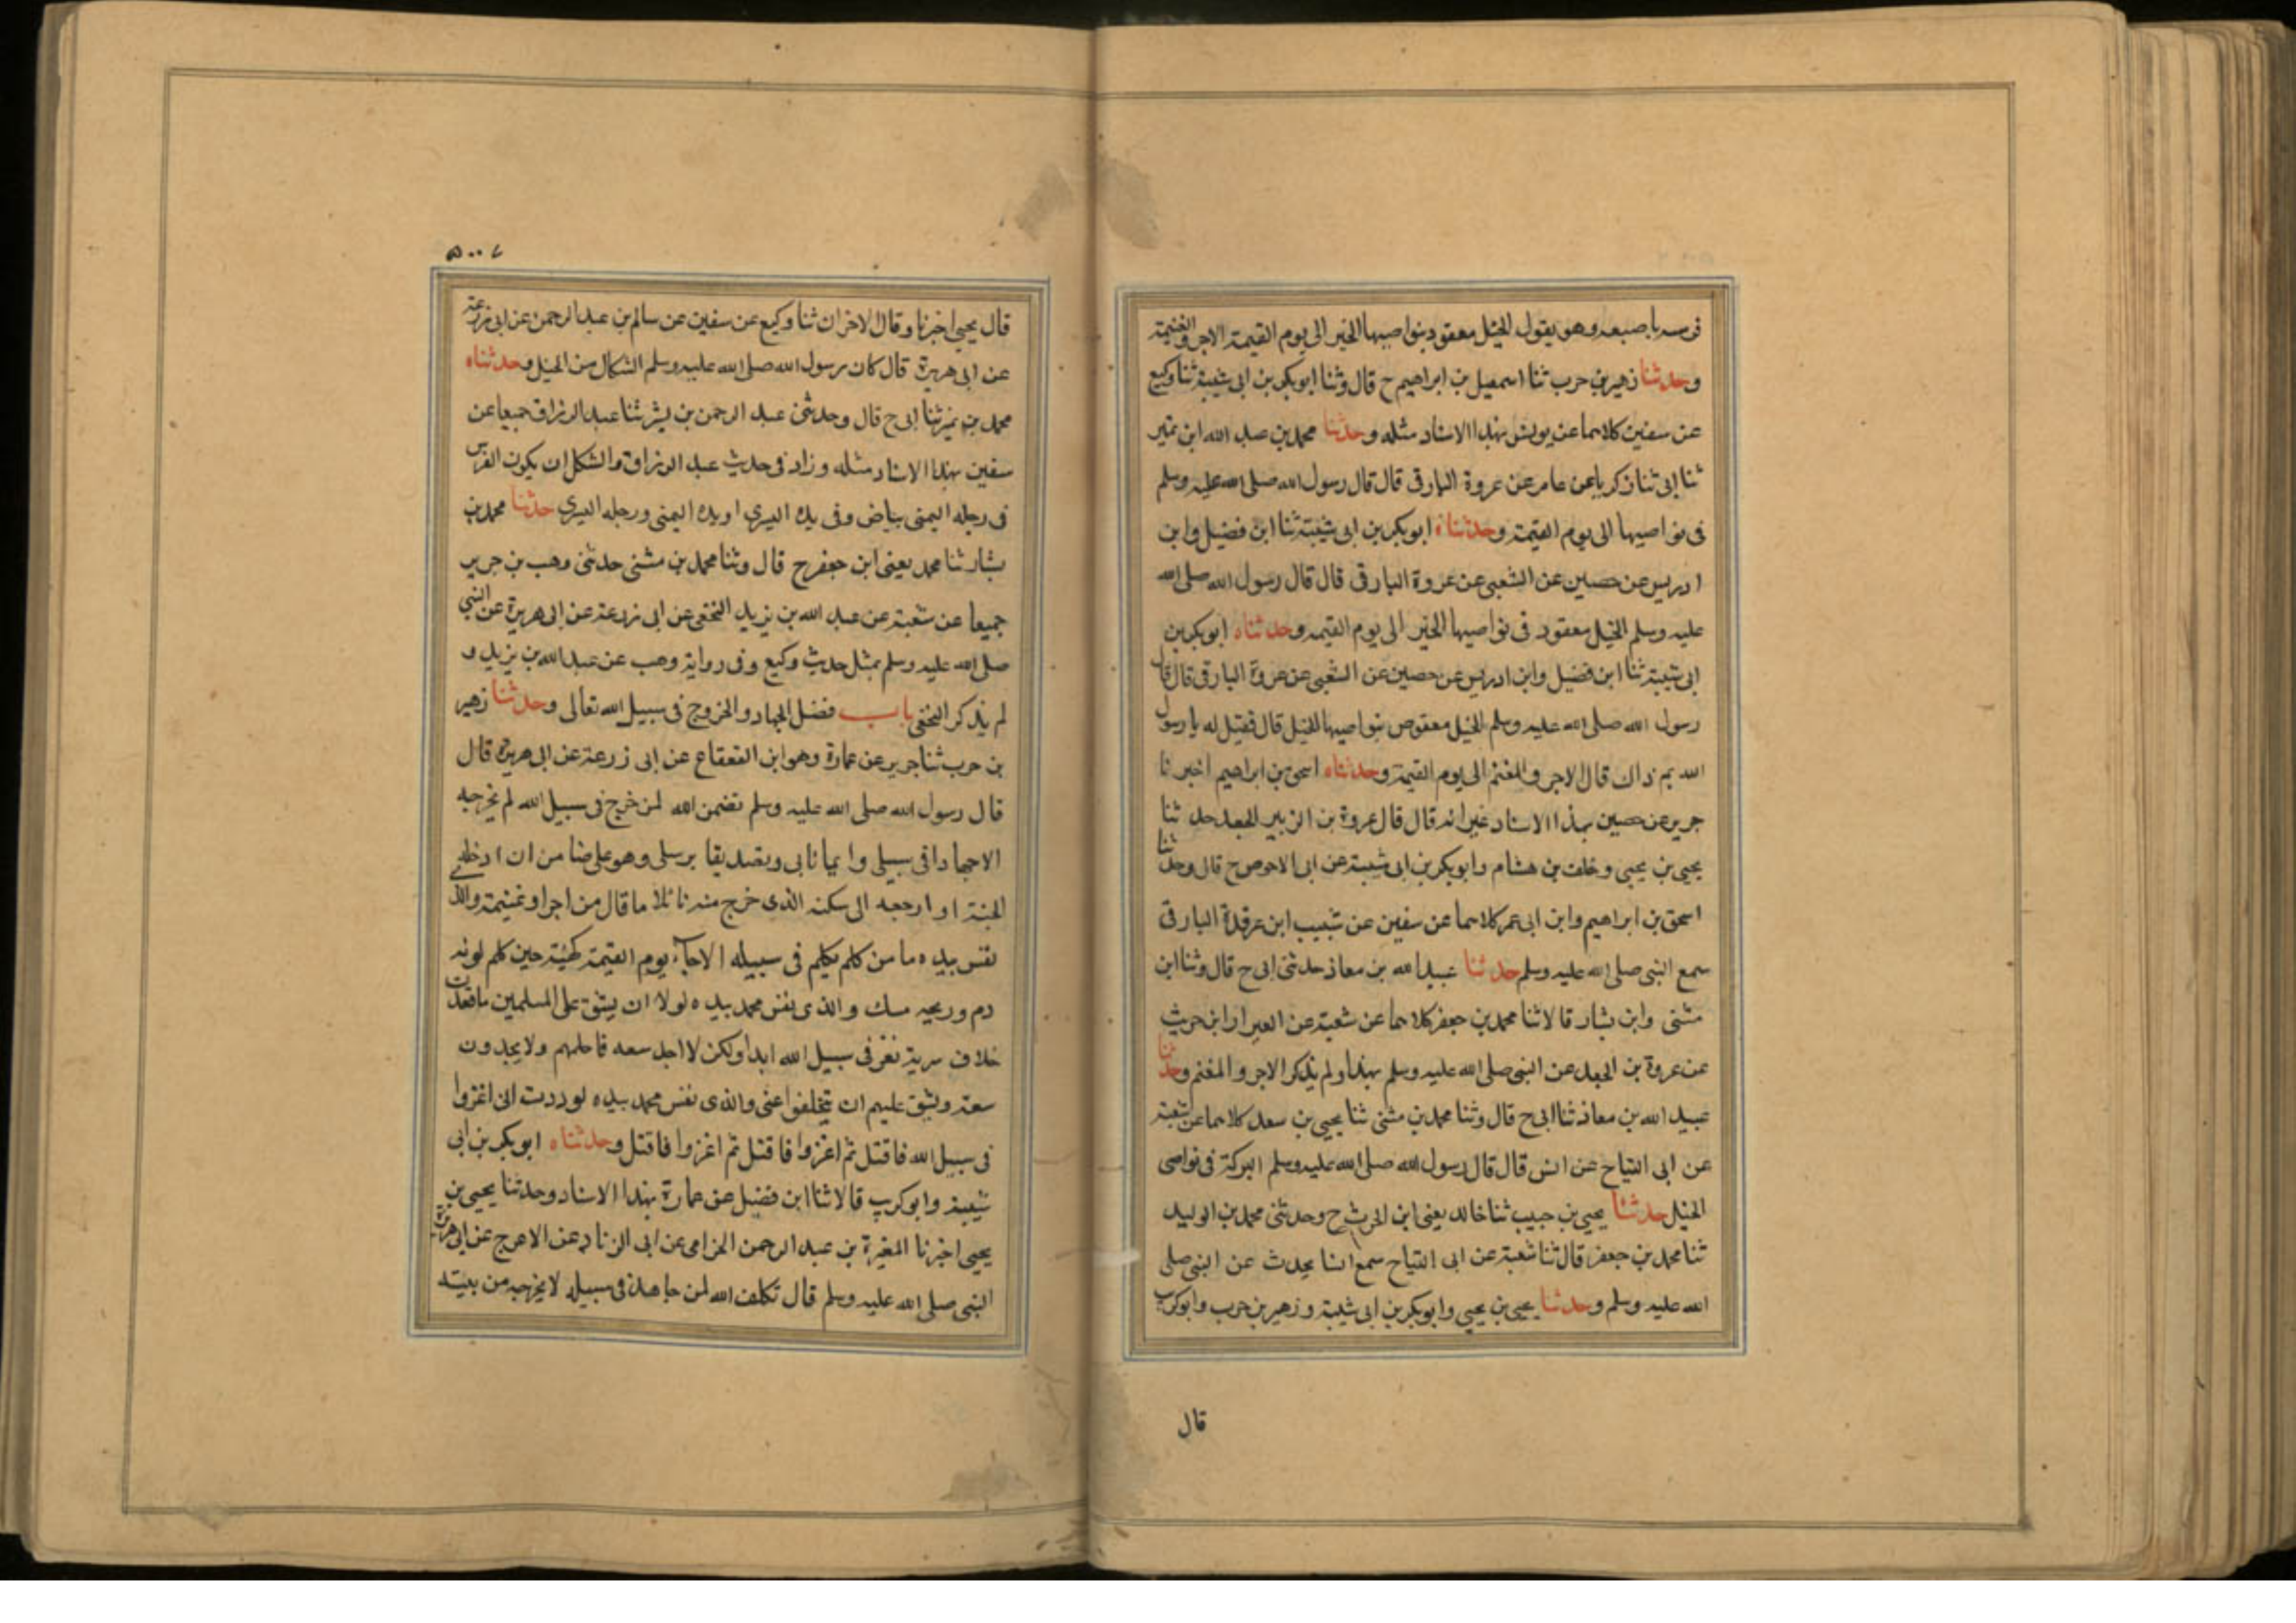 فرسه باصبعه وهو يقول الخيل معقود بنواصيها الخير الى يوم القيمة الاجر والغنيمة
وحدثنا زهير بن حرب ثنا اسمعيل بن ابراهيم ح قال وثنا ابو بكر بن ابى شيبة ثنا وكيع
عن سفين كلاهما عن يونس بهذا الاسناد مثله وحدثنا محمد بن عبد الله ابن نمير
ثنا ابى ثنا زكريا عن عامر عن عروة البارقى قال قال رسول الله صلى الله عليه وسلم
فى نواصيها الى يوم القيمة وحدثناه ابو بكر بن ابى شيبة ثنا ابن فضيل وابن
ادريس عن حصين عن الشعبى عن عروة البارقى قال قال رسول الله صلى الله
عليه وسلم الخيل معقود فى نواصيها الخير الى يوم القيمه وحدثناه ابو بكر بن
ابى شيبة ثنا ابن فضيل وابن ادريس عن حصين عن الشعبى عن عروة البارقى قال قال
رسول الله صلى الله عليه وسلم الخيل معقوص بنواصيها للخيل قال فقيل له يا رسول
الله بم ذاك قال الاجر والمغنم الى يوم القيمة وحدثناه اسحق بن ابراهيم اخبرنا
جرير عن حصين بهذا الاسناد غير انه قال قال عروة بن الزبير الجعد حدثنا
يحيى بن يحيى وخلف بن هشام وابو بكر بن ابى شيبة عن ابى الاحوص ح قال وحدثنا
اسحق بن ابراهيم وابن ابى عمر كلاهما عن سفين عن شبيب ابن عرقدة البارقى
سمع النبى صلى الله عليه وسلم حدثنا عبيد الله بن معاذ حدثنى ابى ح قال وثنا ابن
مثنى وابن بشار قالا ثنا محمد بن جعفر كلاهما عن شعبة عن العيرار ابن حريث
عن عروة بن الجعد عن النبى صلى الله عليه وسلم بهذا ولم يذكر الاجر والمغنم وحدثنا
عبيد الله بن معاذ ثنا ابى ح قال وثنا محمد بن مثنى ثنا يحيى بن سعد كلاهما عن شعبة
عن ابى التياح عن انس قال قال رسول الله صلى الله عليه وسلم البركة فى نواصى
الخيل حدثنا يحيى بن حبيب ثنا خالد يعنى ابن الحرث ح وحدثنى محمد بن الوليد
ثنا محمد بن جعفر قال ثنا شعبة عن ابى التياح سمع انسا يحدث عن النبى صلى
الله عليه وسلم وحدثنا يحيى بن يحيى وابو بكر بن ابى شيبة وزهير بن حرب وابو كريب
قال
قال يحيى اخبرنا وقال الاخران ثنا وكيع عن سفين عن سالم بن عبد الرحمن عن ابى زرعة
عن ابى هريرة قال كان رسول الله صلى الله عليه وسلم الشكال من الخيل وحدثناه
محمد بن نمير ثنا ابى ح قال وحدثنى عبد الرحمن بن بشر ثنا عبد الرزاق جميعا عن
سفين بهذا الاسناد مثله وزاد فى حديث عبد الرزاق والشكل ان يكون الفرس
فى رجله اليمنى بياض وفى يده اليسرى او يده اليمنى ورجله اليسرى حدثنا محمد بن
بشار ثنا محمد يعنى ابن جعفر ح قال وثنا محمد بن مثنى حدثنى وهب بن جرير
جميعا عن شعبة عن عبد الله بن يزيد النخعى عن ابى زرعة عن ابى هريرة عن النبى
صلى الله عليه وسلم بمثل حديث وكيع وفى رواية وهب عن عبد الله بن يزيد و
لم يذكر النخعى باب فضل الجهاد والخروج فى سبيل الله تعالى وحدثنا زهير
بن حرب ثنا جرير عن عمارة وهو ابن القعقاع عن ابى زرعة عن ابى هريرة قال
قال رسول الله صلى الله عليه وسلم تضمن الله لمن خرج فى سبيل الله لم يخرجه
الا جهادا فى سبيلى وايمانا بى وتصديقا برسلى وهو على ضامن ان ادخله
الجنة او ارجعه الى سكنه الذى خرج منه نائلا ما قال من اجر او غنيمة والذ
نفس بيده ما من كلم يكلم فى سبيله الا جاء يوم القيمة كهيئة حين كلم لونه
دم وريحه مسك والذى نفس محمد بيده لولا ان يشق على المسلمين ما قعدت
خلاف سرية تغز فى سبيل الله ابدا ولكن لا اجد سعه فاحلهم ولا يجدون
سعة ويشق عليهم ان يتخلفوا عنى والذى نفس محمد بيده لوددت انى اغزوا
فى سبيل الله فاقتل ثم اغزوا فاقتل ثم اغزوا فاقتل وحدثناه ابو بكر بن ابى
شيبة وابو كريب قالا ثنا ابن فضيل عن عمارة بهذا الاسناد وحدثنا يحيى بن
يحيى اخبرنا المغيرة بن عبد الرحمن الحزامى عن ابى الزناد عن الاعرج عن ابى هريرة
النبى صلى الله عليه وسلم قال تكلف الله لمن جاهد فى سبيله لا يخرجه من بيته